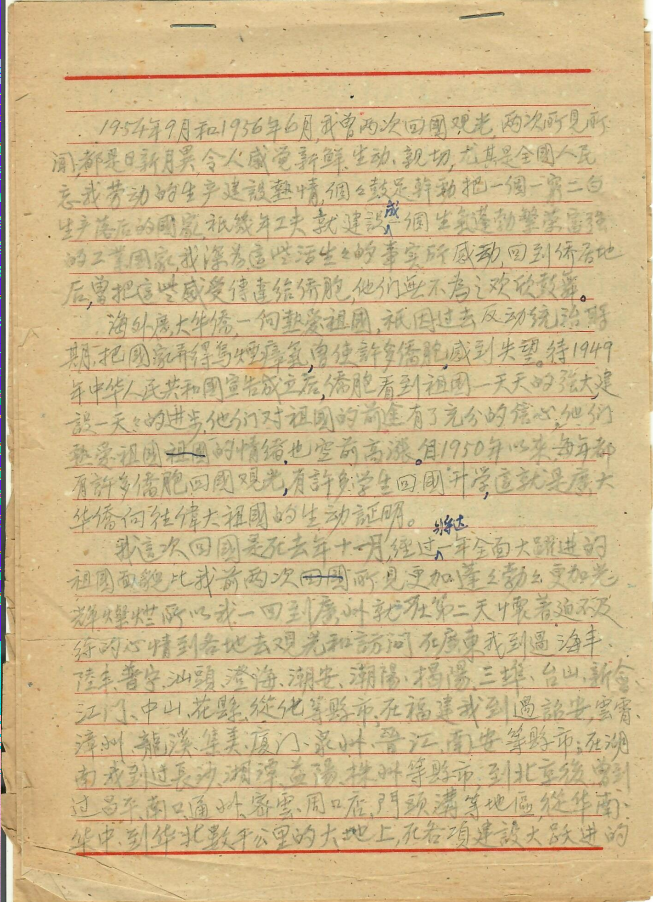 1954年9月和1956年6月,我曾两次回國观光,两次所見所
聞,都是日新月異,令人感覚新鮮、生动、親切,尤其是全國人民
忘我劳动的生产建設热情,個々鼓足幹勁把一個一窮二白
生产落后的國家,祇幾年工夫,就建設成個生氣蓬勃繁荣富強
的工業国家,我深為這些活生々的事实所感动,回到侨居地
后,曾把這些感受傳達给侨胞,他们無不為之欢欣鼓舞。
海外廣大华侨一向热爱祖國,祇因过去反动統治時
期,把國家弄得烏煙瘴氣,曾使許多僑胞,感到失望。待1949
年中华人民共和國宣告成立后,僑胞看到祖国一天天的強大,建
設一天々的進步,他们对祖国的前途有了充分的信心,他们
热爱祖国祖国的情緒,也空前高漲。自1950年以来,每年都
有許多僑胞回國观光,有許多学生回國升学,這就是廣大
华侨向往偉大祖國的生动証明。
我這次回國是在去年十一月,經过将近一年全面大躍進的
祖國面貌比我前两次回國所見更加蓬々勃々更加光
輝燦烂所以我一回到廣州就在第二天懷著迫不及
待的心情到各地去观光和訪问在廣東我到過海丰、
陸丰、普宁、汕頭、澄海、潮安、潮陽、揭陽、三埠、台山、新会、
江门、中山、花縣、從化等縣市,在福建我到過詔安、雲霄、
漳州、龍溪、集美、厦门、泉州、晉江、南安等縣市;在湖
南我到过長沙、湘潭、益陽、株州等縣市;到北京後,曾到
过昌平、南口、通州、密雲、周口店、門頭溝等地區,從华南、
华中、到华北數千公里的大地上,在各項建設大跃進的